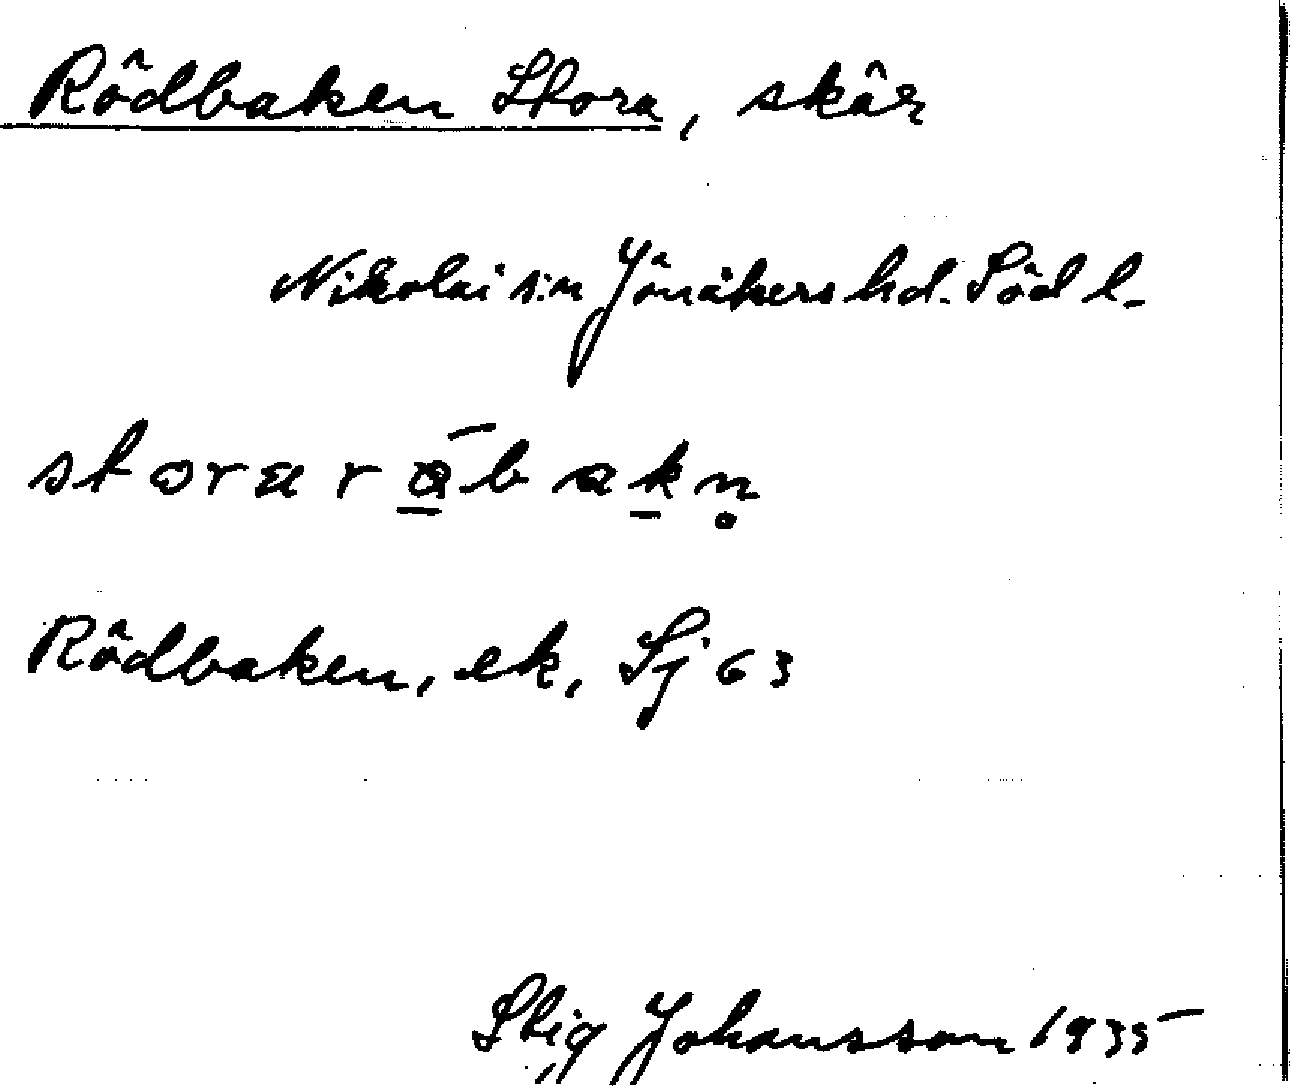 Rödbaken Stora, skär
Nikolai s:n Jönåkers hd. Södl.
Rödbaken, ek, Sj 63
Stig Johansson 1935